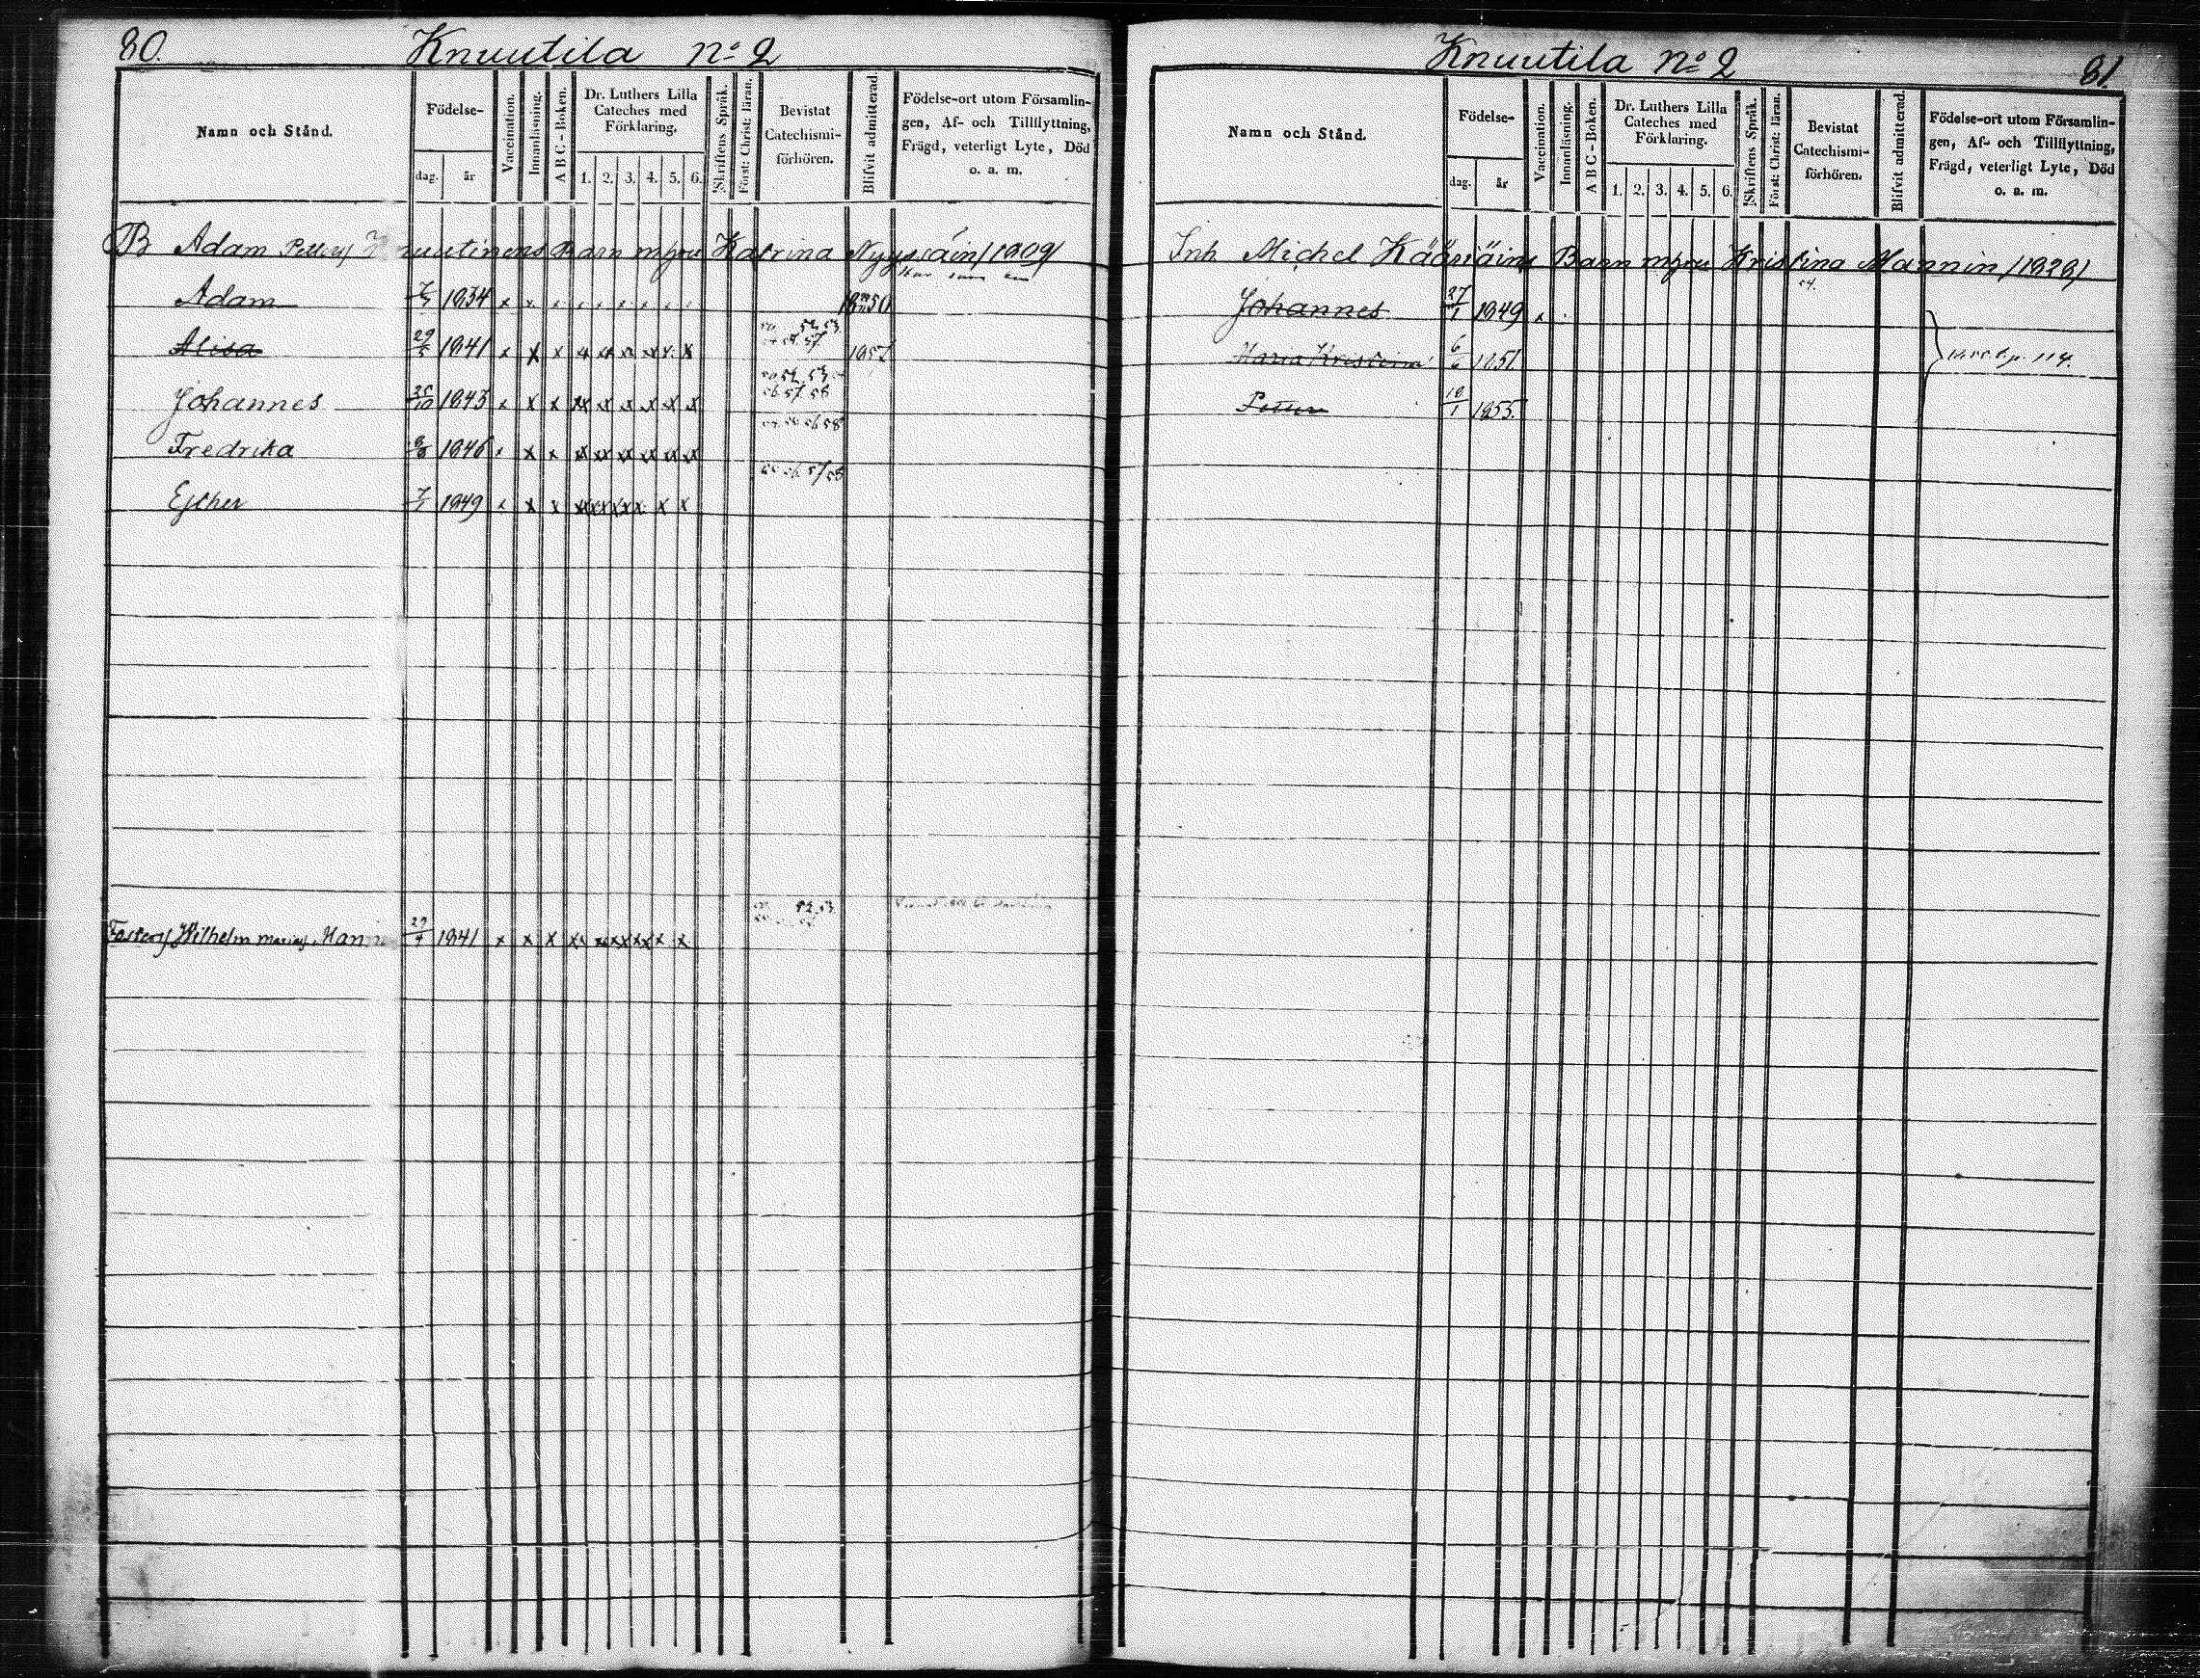 80.
Knuutila No 2
Namn och Stånd.
Födelse-
dag.
år
Vaccination.
Innanläsning.
A B C - Boken.
Dr. Luthers Lilla
Cateches med
Förklaring.
1. 2. 3. 4. 5. 6.
Skriftens Språk.
Först: Christ: läran.
Bevistat
Catechismi-
förhören.
Blifvit admitterad.
Födelse-ort utom Församlin-
gen, Af- och Tillflyttning,
Frägd, veterligt Lyte, Död
o. a. m.
B Adam Knuutinens Barn m hu Katrina Nyyssöin /1809/
Adam 1834 x x 1850
Alisa 29/5 1841 x x x x x x x x x 52 53 57 1857
Johannes 25/10 1843 x x x x x x x x x 52 53 56 57 58
Fredrika 1846 x x x x x x x x x 56 58
Esther 1849 x x x x x x x x x 56 57 58
Wilhelm Mann 29/4 1841 x x x x x x x x x 52 53
Knuutila No 2
81.
Namn och Stånd.
Födelse-
dag.
år
Vaccination.
Innanläsning.
A B C - Boken.
Dr. Luthers Lilla
Cateches med
Förklaring.
1. 2. 3. 4. 5. 6.
Skriftens Språk.
Först: Christ: läran.
Bevistat
Catechismi-
förhören.
Blifvit admitterad.
Födelse-ort utom Församlin-
gen, Af- och Tillflyttning,
Frägd, veterligt Lyte, Död
o. a. m.
Inh Michel Kääriäins Barn m hu Kristina Mannin /1828/
Johannes 27/1 1849 x
Maria Kristina 6/6 1851 p. 114.
Petter 18/1 1855.